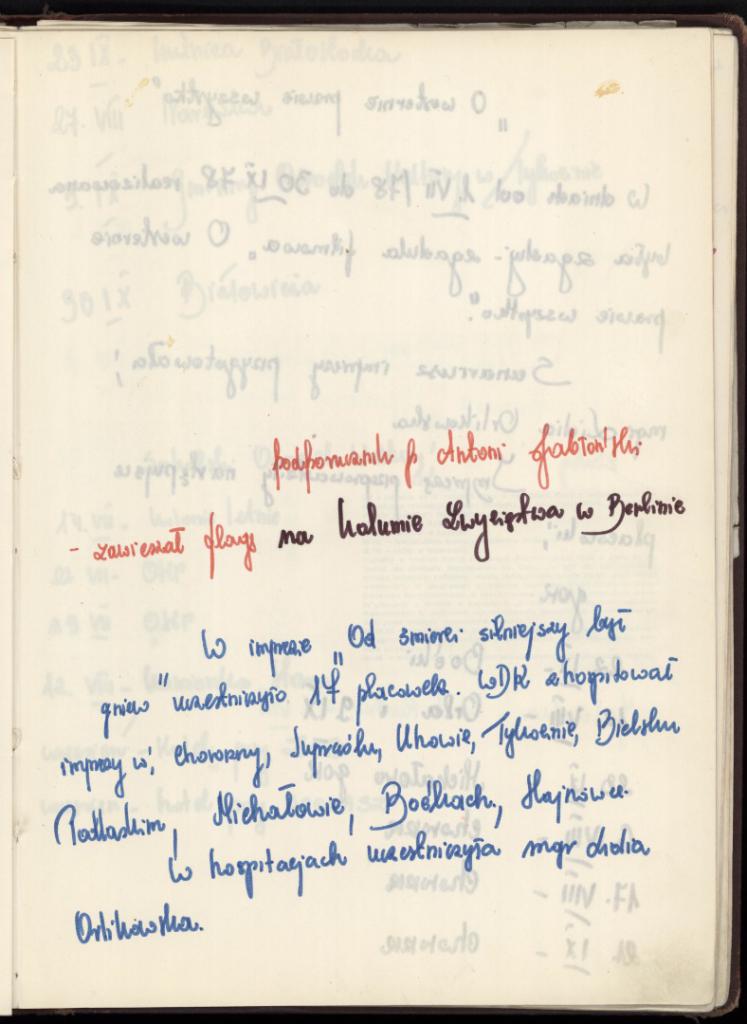 podporucznik p Antoni Jabłoński
- zawieszał flagę na kolumie Zwycięstwa w Berlinie
W imprezie „Od śmierci silniejszy był
gniew" uczestniczyło 17 placówek. WDK zhospitował
imprezy w: Choroszczy, Supraślu, Uhowie, Tykocinie, Bielsku
Podlaskim, Michałowie, Boćkach, Hajnówce.
W hospitacjach uczestniczyła mgr Lidia
Orlikowska.